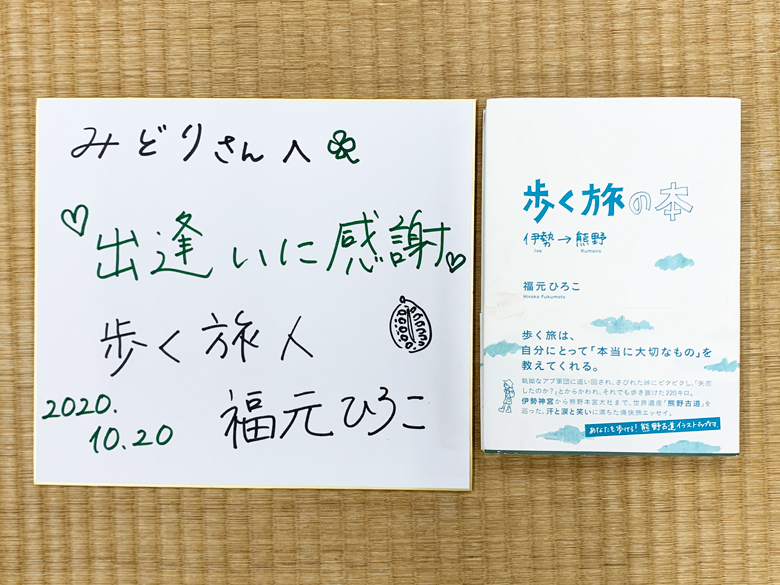 みどりさんへ
出逢いに感謝
歩く旅人
2020.
10.20
福元ひろこ
歩く旅の本
伊勢→熊野
Ise Kumano
福元ひろこ
Hiroko Fukumoto
歩く旅は、
自分にとって「本当に大切なもの」を
教えてくれる。
執拗なアブ軍団に追い回され、さびれた峠にビクビクし、「失恋
したのか？」とからかわれ、それでも歩き抜けた220キロ。
伊勢神宮から熊野本宮大社まで、世界遺産「熊野古道」を
巡った、汗と涙と笑いに満ちた痛快旅エッセイ。
あなたも歩ける！熊野古道イラストマップ付。